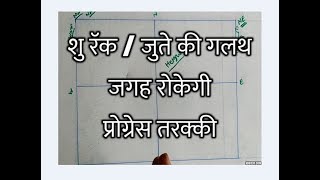 N
NE
शु रॅक / जुते की गलथ
जगह रोकेगी
E
प्रोग्रेस तरक्की